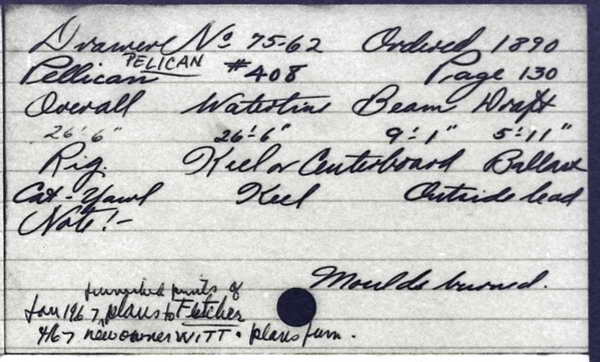 Drawer No 75-62 Ordered 1890
PELICAN
Pellican #408 Page 130
Overall Waterline Beam Draft
26'6" 26'-6" 9'-1" 5'-11"
Rig. Keel or Centerboard Ballast
Cat-Yawl Keel Outside lead
Note!-
Moulds burned.
furnished prints of
Jan 1967, plans to Fletcher
4/67 new owner WITT. plans furn.